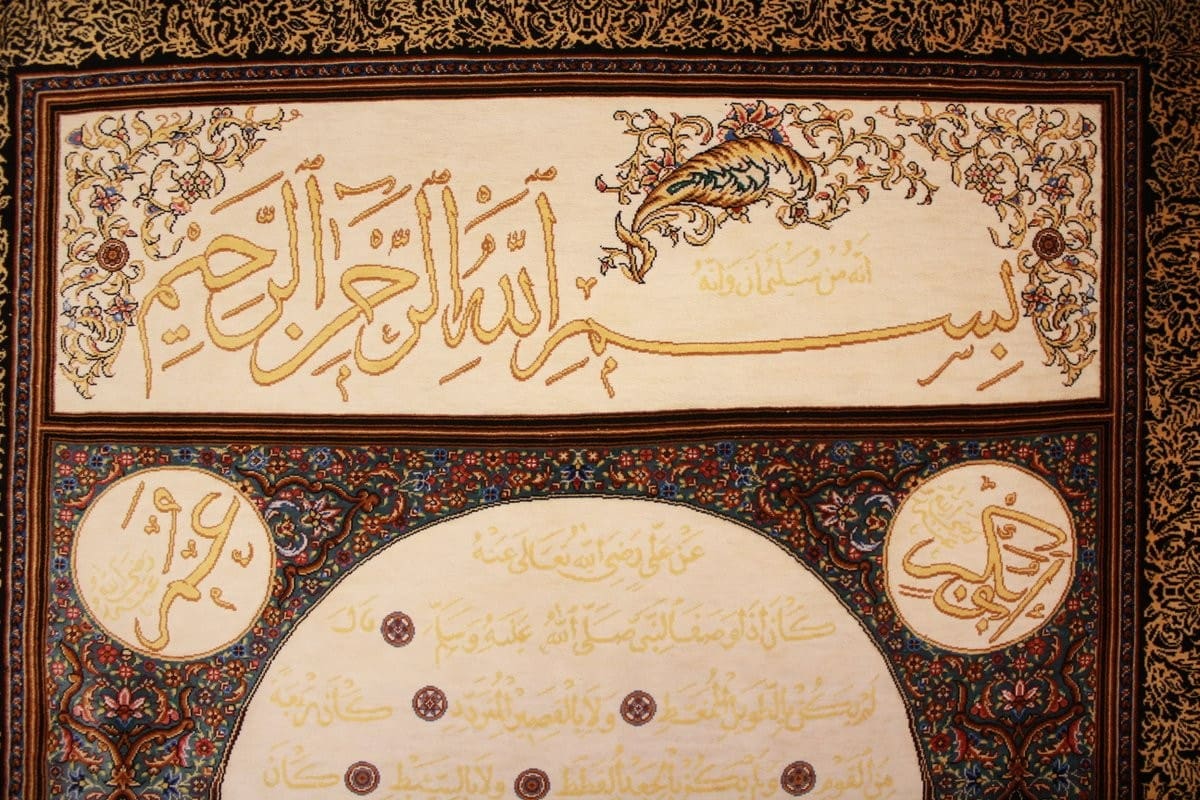 انه من سليمان وانه
بسم الله الرحمن الرحيم
ابو بكر
رضي الله عنه
عمر
رضي الله عنه
عن علي رضي الله تعالى عنه
كان اذا وصف النبي صلى الله عليه وسلم قال
لم يكن بالطويل الممغط ولا بالقصير المتردد كان ربعة
من القوم ولم يكن بالجعد القطط ولا بالسبط كان